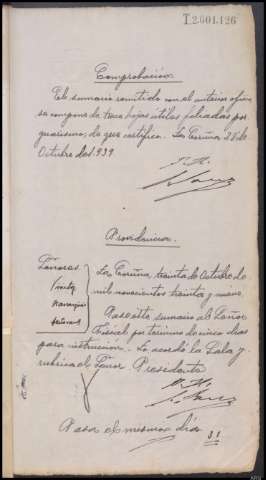 I.2.601.126
Comprobación
El sumario remitido con el anterior oficio
se compone de trece hojas útiles foliadas por
guarismo, de que certifico. La Coruña 28 de
Octubre de 1.939.
Providencia
Señores
La Coruña, treinta de Octubre de
mil novecientos treinta y nueve.
Pase este sumario al Señor
Fiscal por término de cinco días
para instrucción. Lo acordó la Sala y
rubrica el Señor Presidente
Pasa el mismo día 31